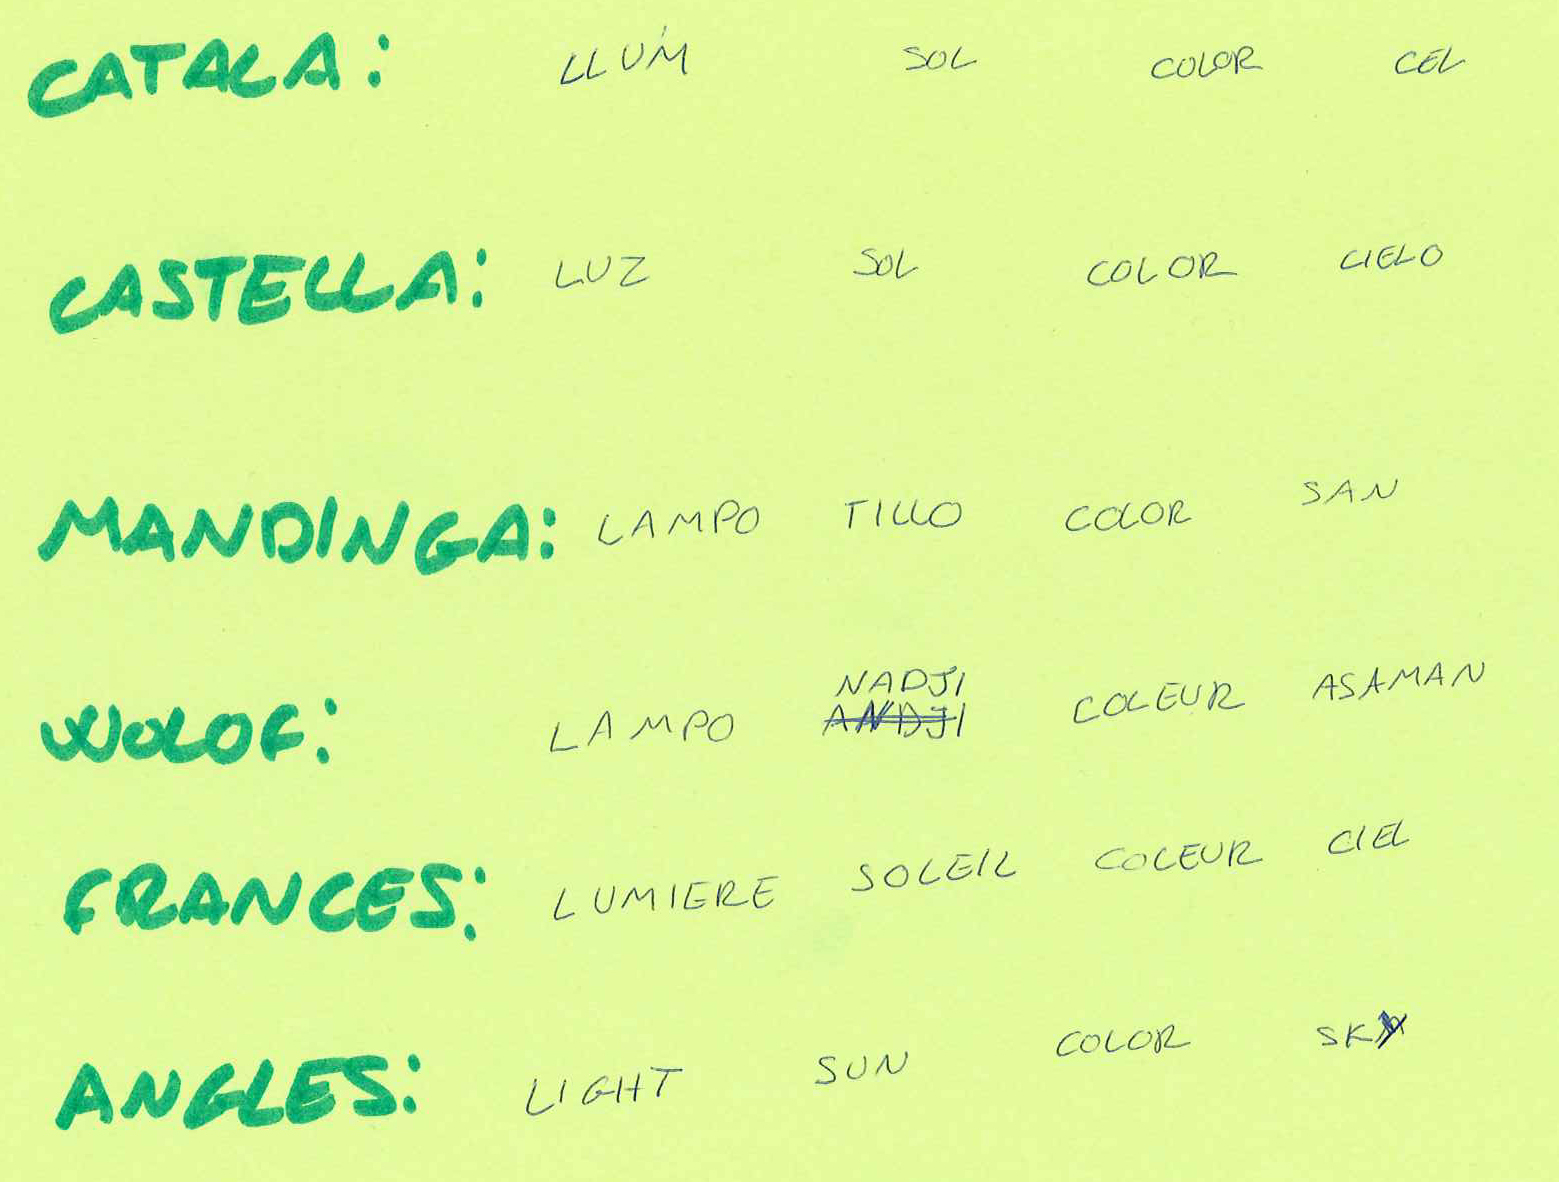 CATALA: LLUM SOL COLOR CEL
CASTELLA: LUZ SOL COLOR CIELO
MANDINGA: LAMPO TILLO COLOR SAN
NADJI
WOLOF: LAMPO ANDJI COLEUR ASAMAN
FRANCES: LUMIERE SOLEIL COLEUR CIEL
ANGLES: LIGHT SUN COLOR SKY